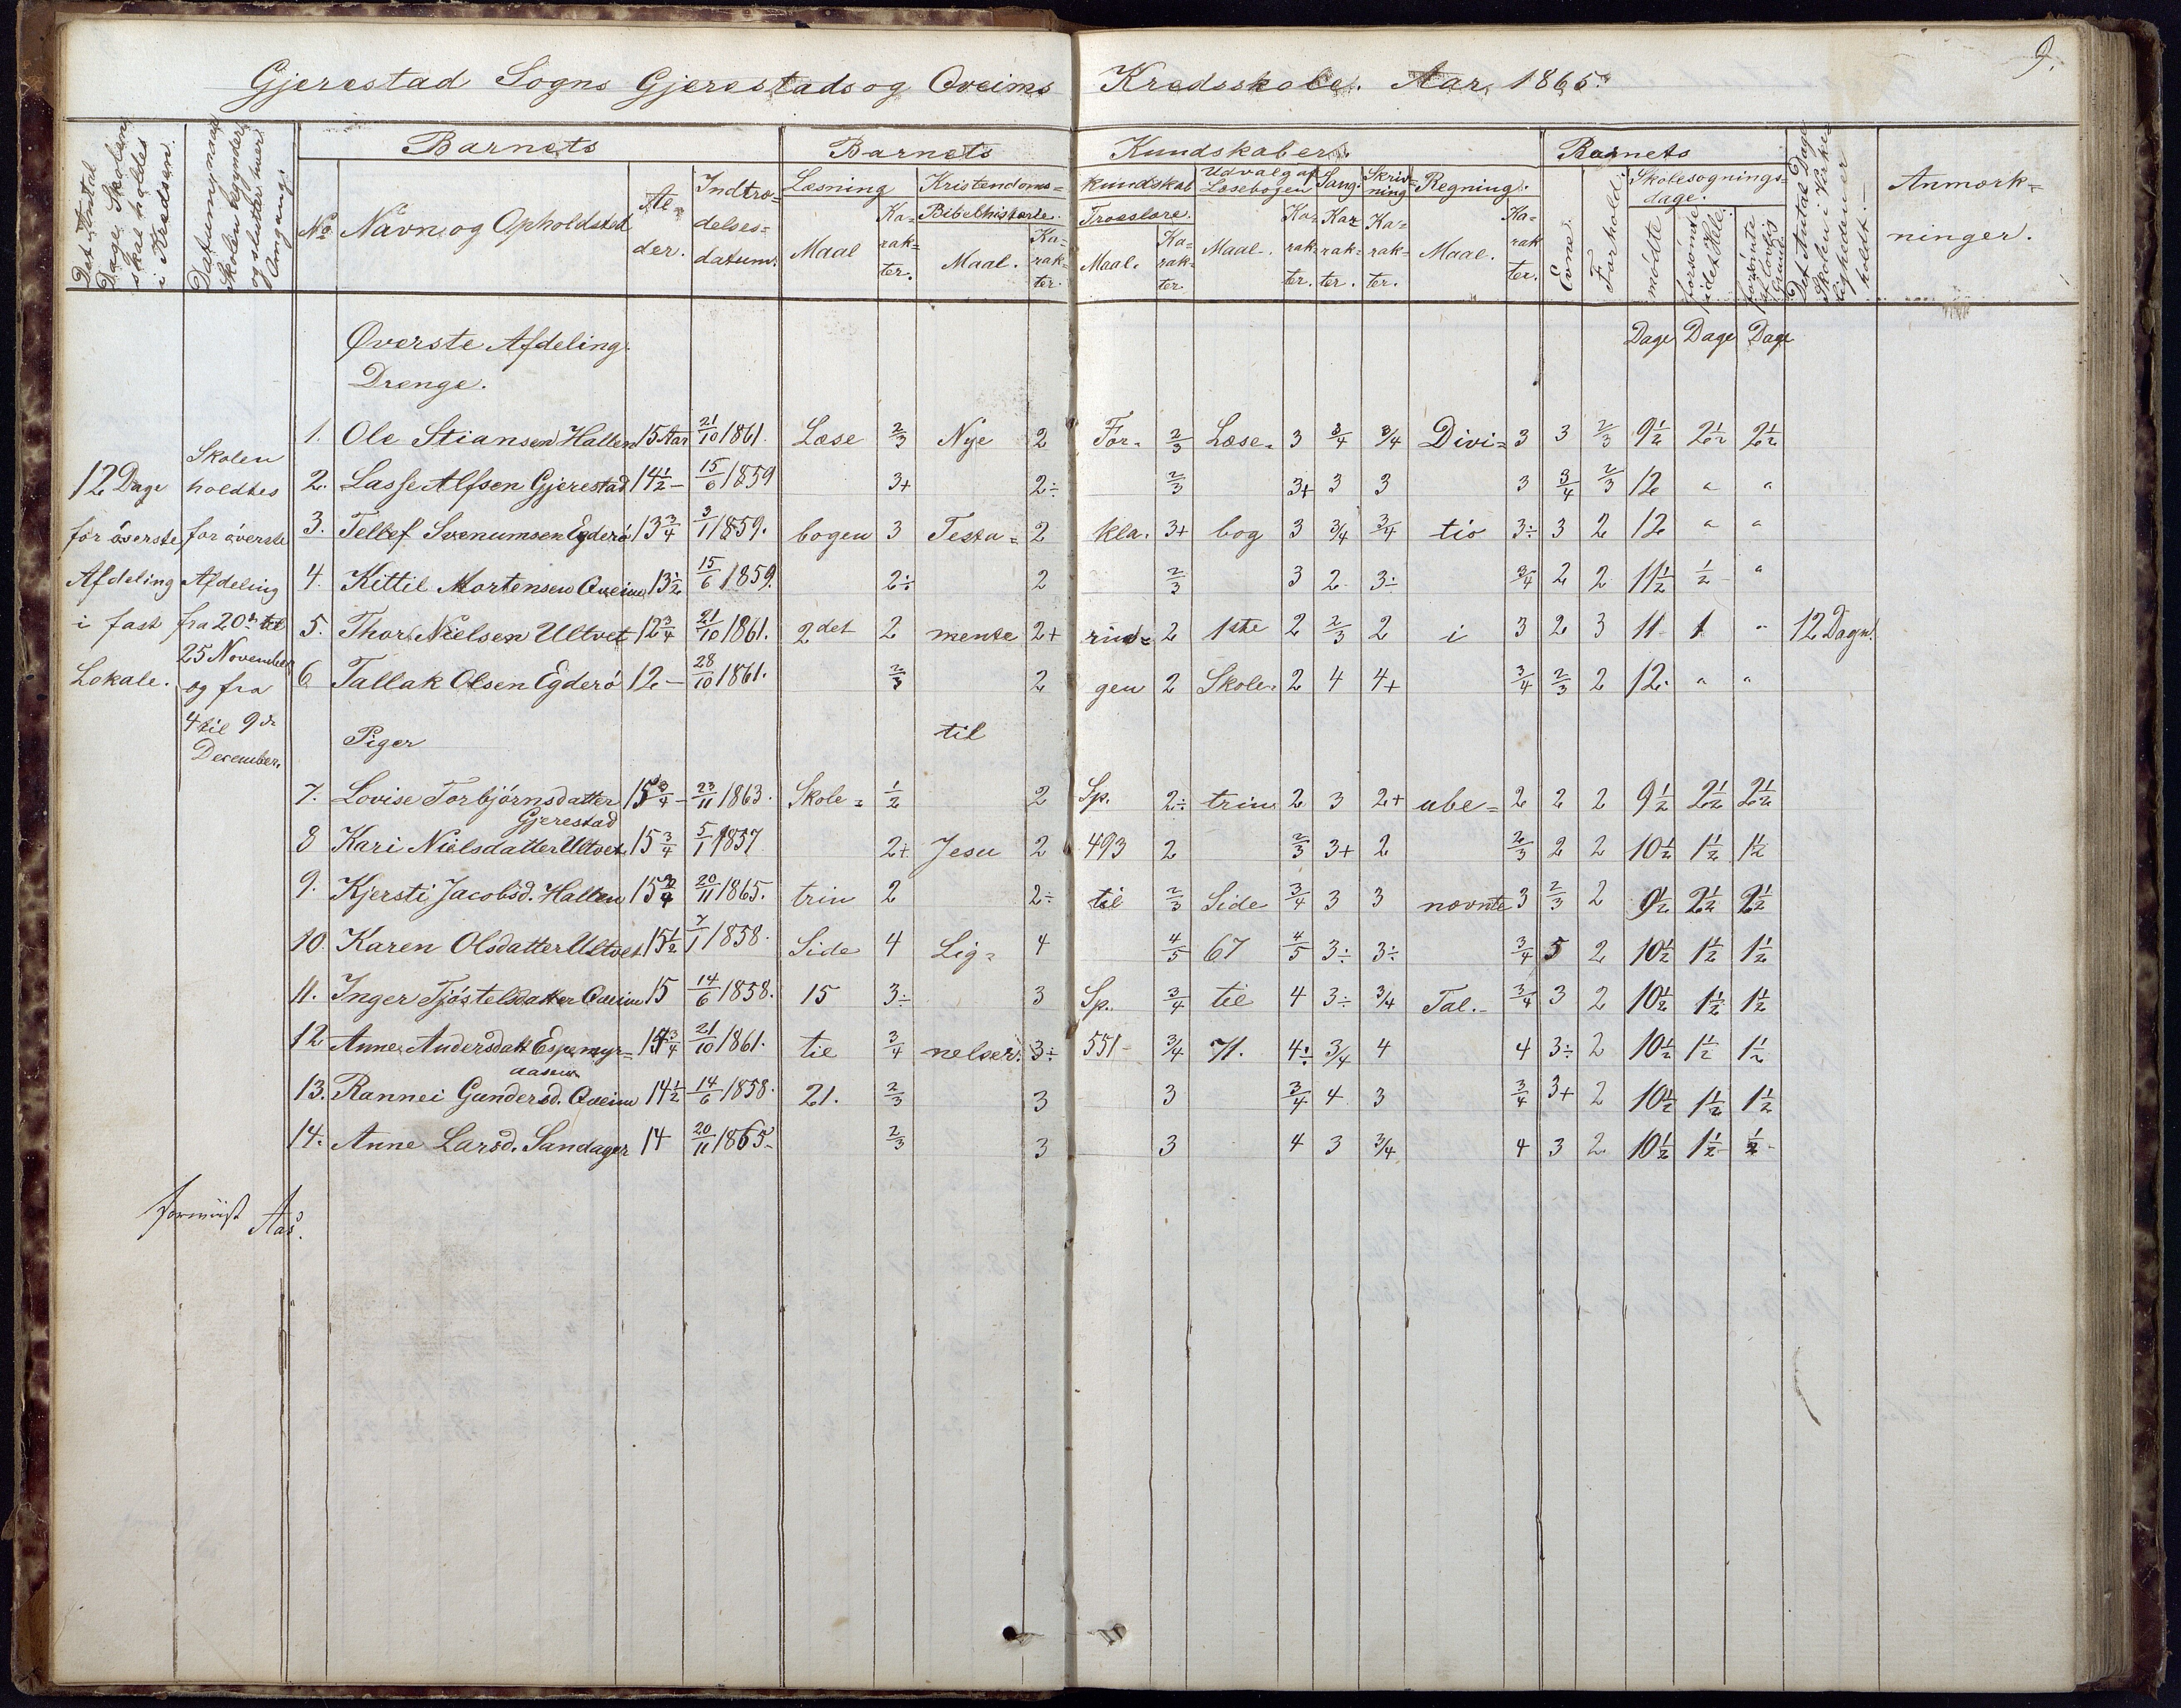 9.
Gjerestad Sogns Gjerestads og Qveims Kredsskole. Aar 1865.
Det Antal Dage, Skolen skal holdes i Kredsen.
Datum, naar Skolen begynder og slutter hver Omgang.
Barnets
No. Navn og Opholdssted
Al-der.
Indtrædelses-datum.
Barnets Kundskaber.
Læsning
Maal
Karakter.
Kristendoms-kundskab
Bibelhistorie.
Maal.
Karakter.
Troeslære.
Maal.
Karakter.
Udvalg af Læsebogen
Maal.
Karakter.
Sang.
Karakter.
Skrivning
Karakter.
Regning.
Maal.
Karakter.
Barnets
Evne.
Forhold.
Skolesøgnings-dage.
mødte
forsømte i det Hele.
forsømte af lovlig Grund.
Det Antal Dage Skolen i Virkeligheden er holdt.
Anmærk-ninger.
Øverste Afdeling. Dage Dage Dage
Drenge.
1. Ole Stiansen Hallen 15 Aar 21/10 1861. Læse 2/3 Nye 2 For- 2/3 Læse- 3 3/4 3/4 Divi- 3 3 2/3 9½ 2½ 2½
2. Lasse Alfsen Gjerestad 14½ - 15/6 1859 3+ 2÷ 2/3 3+ 3 3 3 3/4 2/3 12 " "
3. Tellef Svenumsen Egderø 13¾ 3/1 1859. bogen 3 Testa- 2 kla- 3+ bog 3 3/4 3/4 tio 3÷ 3 2 12 " "
4. Kittil Mortensen Qveim 13½ 15/6 1859. 2÷ 2 2/3 3 2 3÷ 3/4 2 2 11½ ½ "
5. Thor Nielsen Ultvet 12¾ 21/10 1861. 2det 2 mente 2+ rin- 2 1ste 2 2/3 2 i 3 2 3 11 1 " 12 Dage.
6 Tallak Olsen Egderø 12 - 28/10 1861. 2/3 2 gen 2 Skole- 2 4 4+ 3/4 2/3 2 12 " "
12 Dage
for øverste
Afdeling
i fast
Lokale.
Skolen
holdtes
for øverste
Afdeling
fra 20de til
25 November
og fra
4 til 9de
December.
Piger til
7. Lovise Torbjørnsdatter Gjerestad 15¾ - 23/11 1863. Skole- ½ 2 Sp. 2÷ trin 2 3 2+ ube- 2 2 2 9½ 2½ 2½
8 Kari Nielsdatter Ultvet 15¾ 5/1 1857 2+ Jesu 2 493 2 2/3 3+ 2 2/3 2 2 10½ 1½ 1½
9. Kjersti Jacobsd. Hallen 15¾ 20/11 1865. trin 2 2÷ til 2/3 Side 3/4 3 3 nævnte 3 2/3 2 9½ 2½ 2½
10. Karen Olsdatter Ultvet 15½ 7/1 1858. Side 4 Lig- 4 4/5 67 4/5 3÷ 3÷ 3/4 5 2 10½ 1½ 1½
11. Inger Tjøstelsdatter Qveim 15 14/6 1858. 15 3÷ 3 Sp. 3/4 til 4 3÷ 3/4 Tal. 3/4 3 2 10½ 1½ 1½
12 Anne Andersdatt Espemyr-aasen 14¾ 21/10 1861. til 3/4 nelser. 3÷ 551 3/4 71. 4÷ 3/4 4 4 3÷ 2 10½ 1½ 1½
13. Rannei Gundersd. Qveim 14½ 14/6 1858. 21. 2/3 3 3 3/4 4 3 3/4 3+ 2 10½ 1½ 1½
14. Anne Larsd. Sandager 14 20/11 1865 2/3 3 3 4 3 3/4 4 3 2 10½ 1½ ½
Aas.